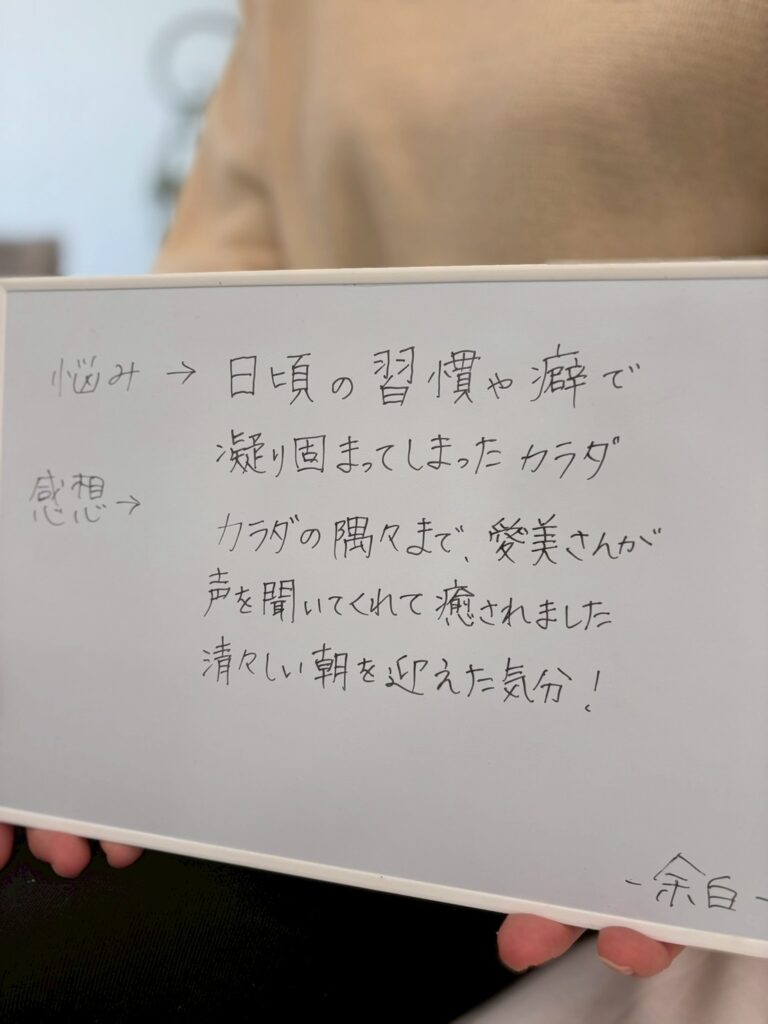 悩み → 日頃の習慣や癖で
凝り固まってしまったカラダ
感想→
カラダの隅々まで、愛美さんが
声を聞いてくれて癒されました
清々しい朝を迎えた気分!
-余白-